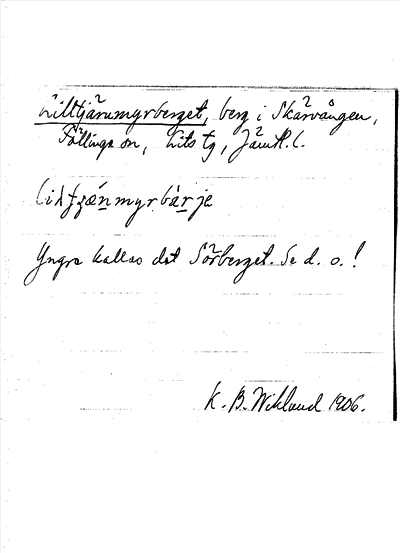 Lilltjärnmyrberget, berg i Skärvången,
Föllinge sn, Lits tg, Jämtl. l.
Yngre kallas det Sörberget. Se d. o.!
K. B. Wiklund 1906.